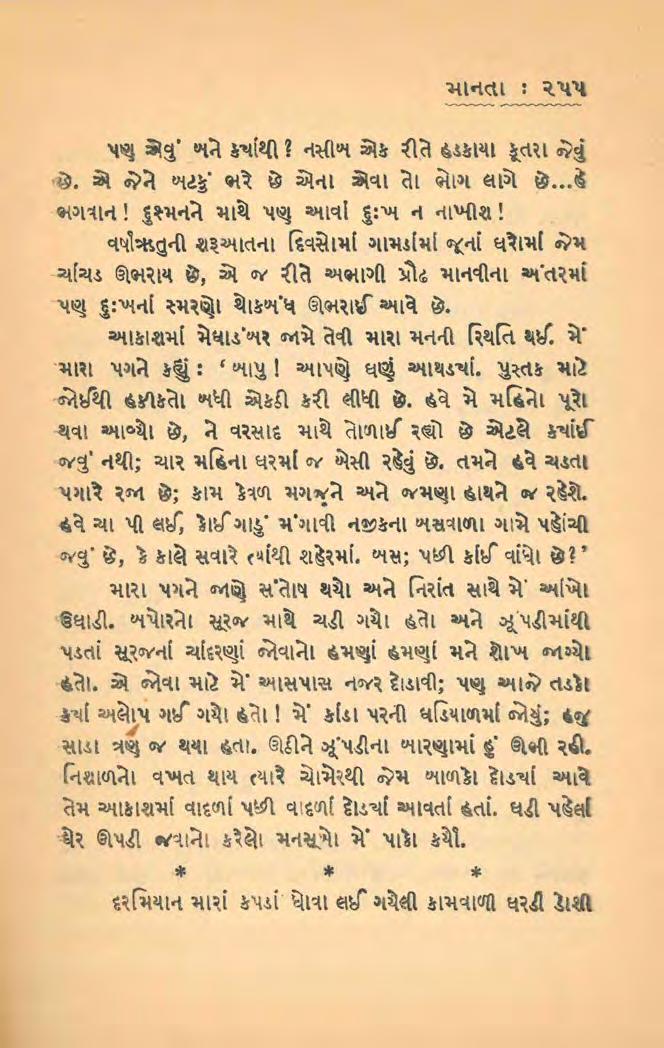 માનતા : ૨૫૫
પણ એવું બને ક્યાંથી? નસીબ એક રીતે હડકાયા કૂતરા જેવું
છે. એ જેને બટકું ભરે છે એના એવા તો ભોગ લાગે છે...હે
ભગવાન! દુશ્મનને માથે પણ આવાં દુઃખ ન નાખીશ!
વર્ષાઋતુની શરૂઆતના દિવસોમાં ગામડાંમાં જૂનાં ઘરોમાં જેમ
ચાંચડ ઊભરાય છે, એ જ રીતે અભાગી પ્રૌઢ માનવીના અંતરમાં
પણ દુઃખનાં સ્મરણો થોકબંધ ઊભરાઈ આવે છે.
આકાશમાં મેઘાડંબર જામે તેવી મારા મનની સ્થિતિ થઈ. મેં
મારા પગને કહ્યું : ‘બાપુ! આપણે ઘણું આથડ્યાં. પુસ્તક માટે
જોઈથી હકીકતો બધી એકઠી કરી લીધી છે. હવે મે મહિનો પૂરો
થવા આવ્યો છે, ને વરસાદ માથે તોળાઈ રહ્યો છે એટલે ક્યાંઈ
જવું નથી; ચાર મહિના ઘરમાં જ બેસી રહેવું છે. તમને હવે ચડતા
પગારે રજા છે; કામ કેવળ મગજને અને જમણા હાથને જ રહેશે.
હવે ચા પી લઈ, કોઈ ગાડું મંગાવી નજીકના બસવાળા ગામે પહોંચી
જવું છે, કે કાલે સવારે ત્યાંથી શહેરમાં. બસ; પછી કાંઈ વાંધો છે?’
મારા પગને જાણે સંતોષ થયો અને નિરાંત સાથે મેં આંખો
ઉઘાડી. બપોરનો સૂરજ માથે ચડી ગયો હતો અને ઝૂંપડીમાંથી
પડતાં સૂરજનાં ચાંદરણાં જોવાનો હમણાં હમણાં મને શોખ જાગ્યો
હતો. એ જોવા માટે મેં આસપાસ નજર દોડાવી; પણ આજે તડકો
ક્યાં અલોપ ગઈ ગયો હતો! મેં કાંડા પરની ઘડિયાળમાં જોયું; હજુ
સાડા ત્રણ જ થયા હતા. ઊઠીને ઝૂંપડીના બારણામાં હું ઊભી રહી.
નિશાળનો વખત થાય ત્યારે ચોમેરથી જેમ બાળકો દોડ્યાં આવે
તેમ આકાશમાં વાદળાં પછી વાદળાં દોડ્યાં આવતાં હતાં. ઘડી પહેલાં
ઘેર ઊપડી જવાનો કરેલો મનસૂબો મેં પાકો કર્યો.
* * *
દરમિયાન મારાં કપડાં ધોવા લઈ ગયેલી કામવાળી ઘરડી ડોશી